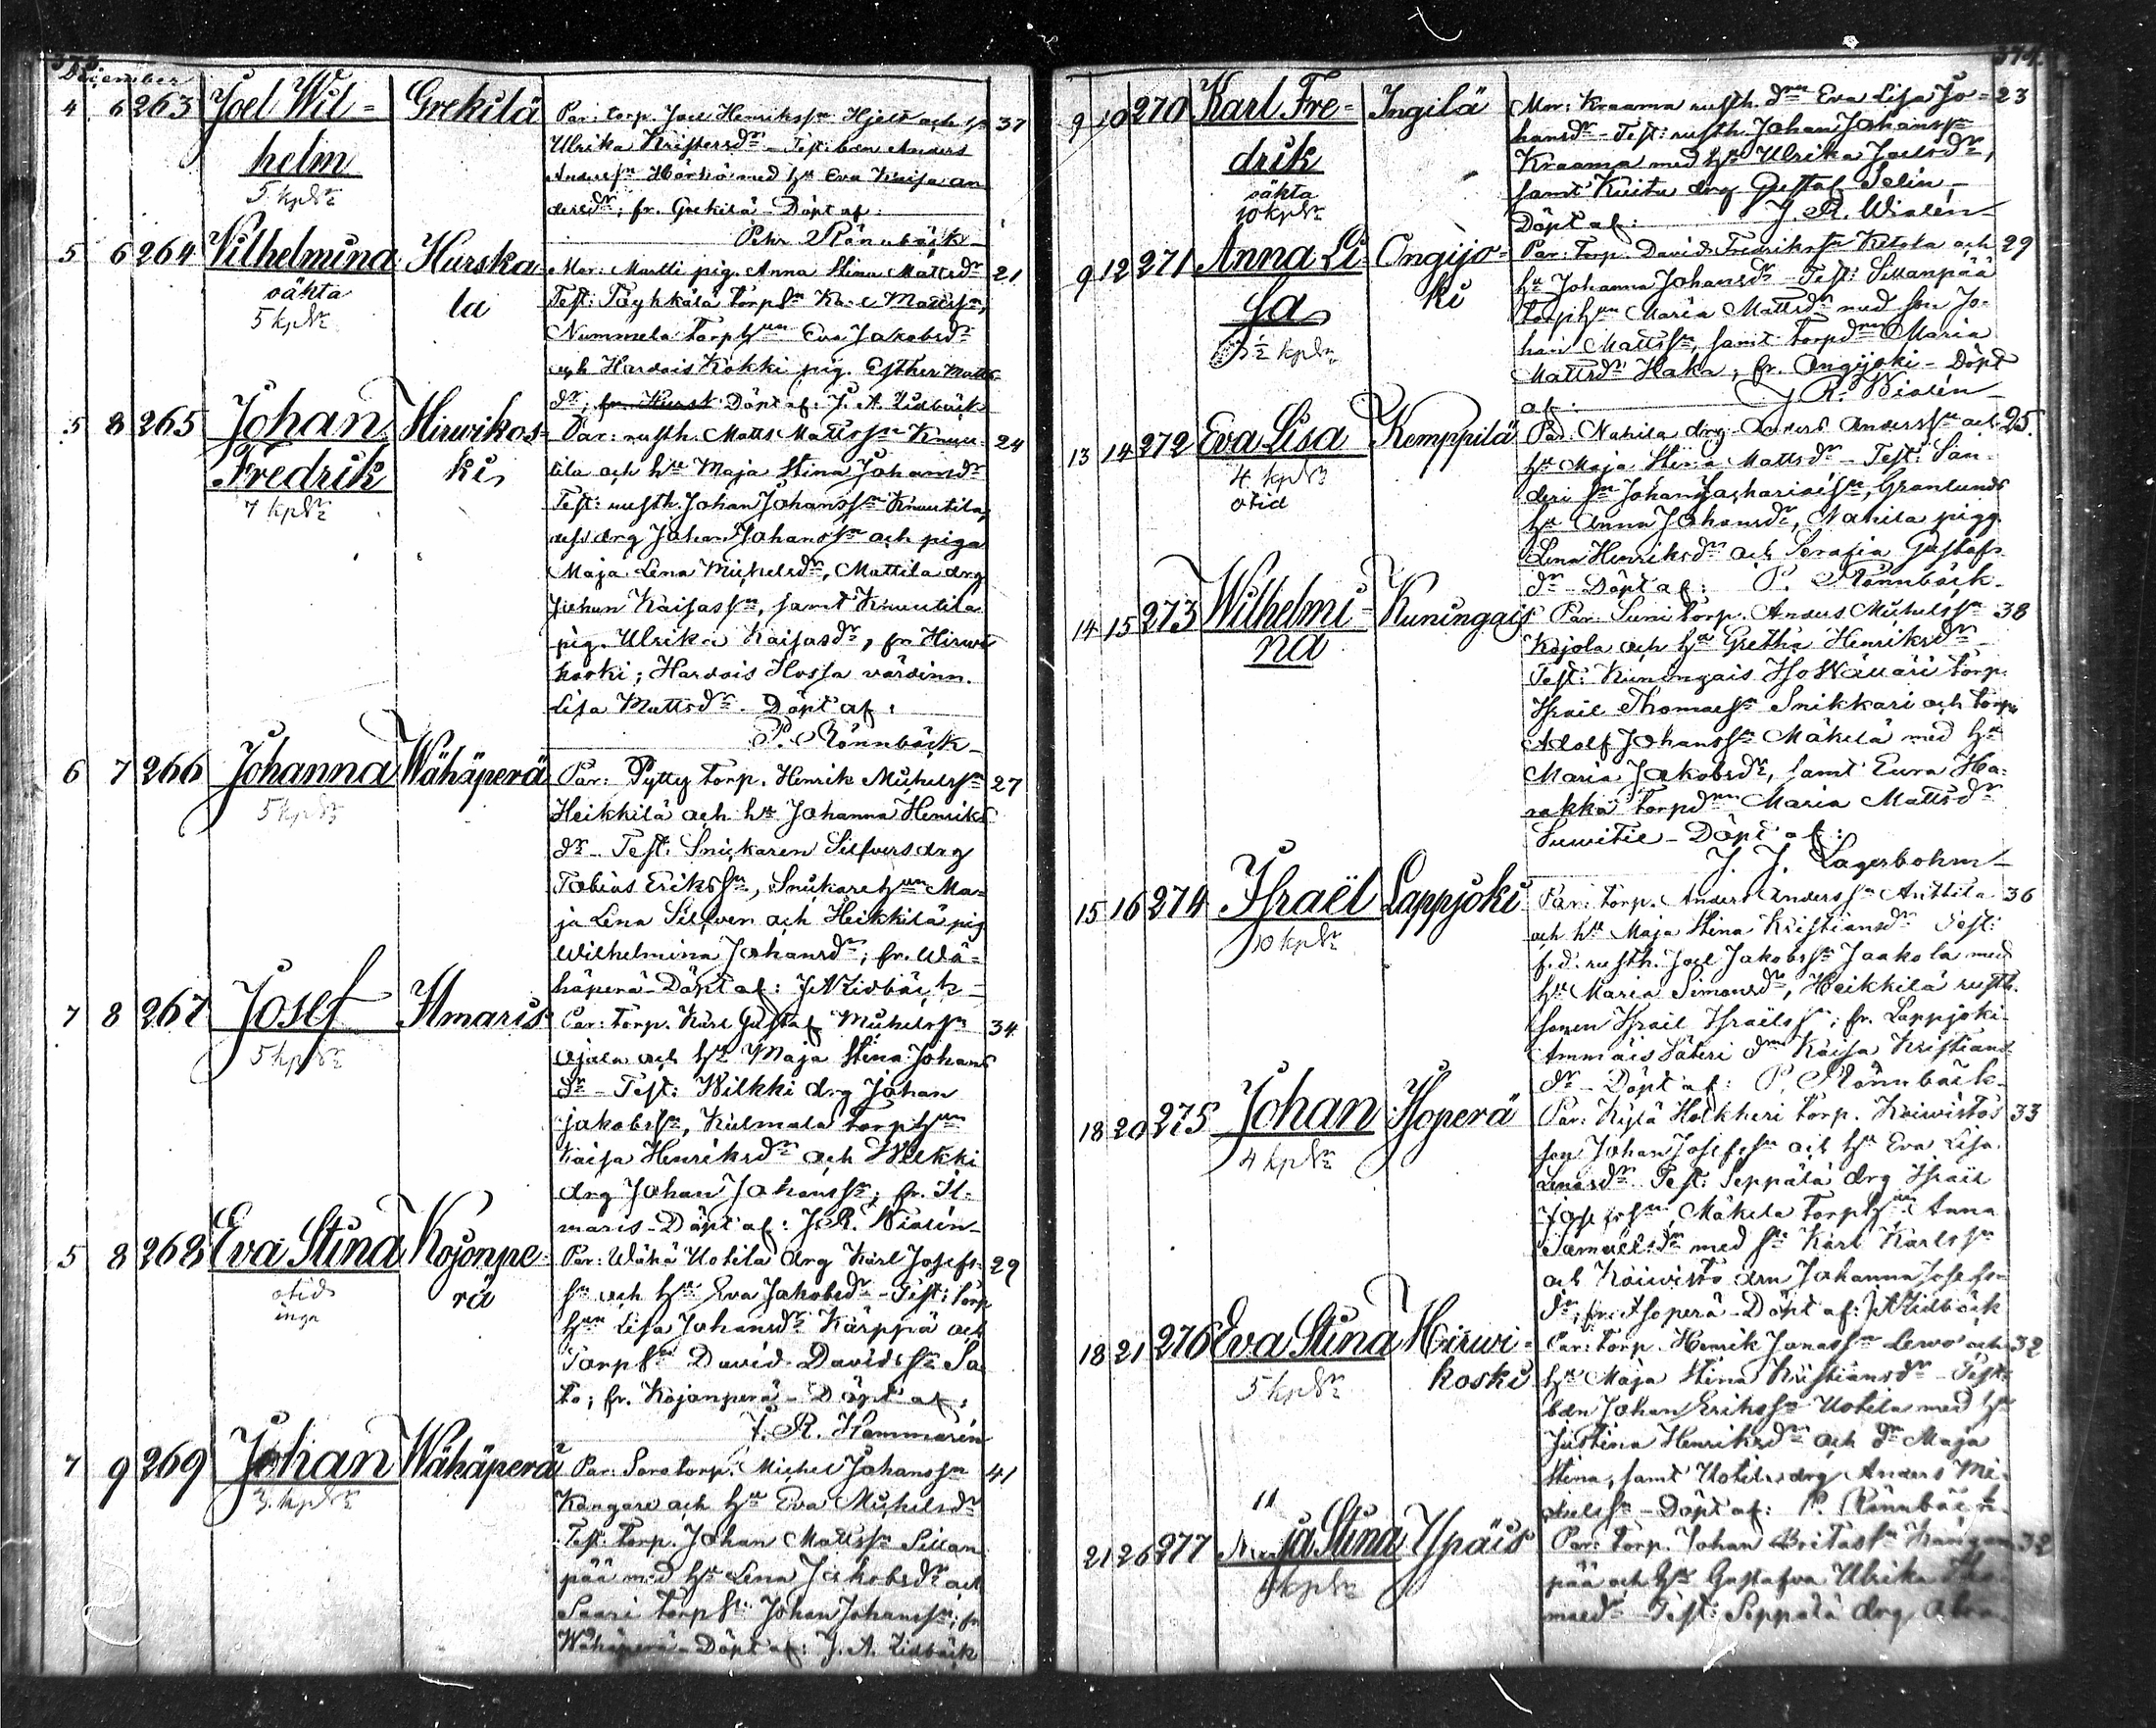 373.
December
4 6 263 Joel Wil= Grekilä Par: torp. Joel Henrikss:n Hjelt och h:u 37
helm Ulrika Kristersd:r – Test: bon Anders
5 kpdr Anderss:n Härkö med h:u Eva Kaisa An
dersd:r, fr. Grekilä – Döpt af:
Pehr Rönnbäck
5 6 264 Vilhelmina Hurska Mor: Martti pig. Anna Stina Mattsd:r 21
oäkta la Test: Pöyhkälä torps:n Karl Mattss:n,
5 kpdr Nummela torph:un Eva Jakobsd:r
och Hardois Kokki pig. Esther Matts
d:r; Döpt af: J. A. Lidbäck
5 8 265 Johan Hirwikos= Par: rusth. Matts Mattss:n Knuu= 24
Fredrik ki tila och h:u Maja Stina Johansd:r
7 kpdr Test: rusth. Johan Johanss:n Knuutila,
dess drg Johan Johanss:n och piga
Maja Lena Michelsd:r, Mattila drg
Johan Kaisass:n, samt Knuutila
pig. Ulrika Kaisasd:r, fr. Hirwi
koski; Hardois Hossa värdinn.
Lisa Mattsd:r. Döpt af:
P. Rönnbäck
6 7 266 Johanna Wähäperä Par: Pytty torp. Henrik Michelss:n 27
5 kpdr Heikkilä och h:u Johanna Henriks
d:r – Test: Snickaren Silfvers drg
Tobias Erikss:n, Snickareh:un Ma=
ja Lena Silfver och Heikkilä pig
Wilhelmina Johansd:r; fr. Wä=
häperä – Döpt af: J A Lidbäck
7 8 267 Josef Ilmaris Par: torp. Karl Gustaf Michelss:n 34
5 kpdr Ojala och h:u Maja Stina Johans
d:r – Test: Wilkki drg Johan
Jakobss:n, Kulmala torph:un
Kaisa Henriksd:r och Wilkki
drg Johan Johanss:n; fr. Il=
maris – Döpt af: J. R. Wialén
5 8 268 Eva Stina Kojonpe= Par: Wähä Uotila drg Karl Josefs= 29
otid rä s:n och h:u Eva Jakobsd:r – Test: torp
inga h:un Lisa Johansd:r Kärppä och
Torps:n David Davidss:n Sa
to; fr. Kojonperä – Döpt af:
F. R. Hammarén
7 9 269 Johan Wähäperä Par: Saro torp. Michel Johanss:n 41
3 kpdr Kangare och h:u Eva Michelsd:r
Test: torp. Johan Mattss:n Sillan
pää med h:u Lena Jakobsd:r och
Saari torps:n Johan Johanss:n; fr
Wähäperä – Döpt af: J. A. Lidbäck
374.
9 10 270 Karl Fre= Ingilä Mor: Kraama rusth. d:r Eva Lisa Jo= 23
drik hansd:r – Test: rusth. Johan Johanss:n
oäkta Kraama med h:u Ulrika Joelsd:r,
10 kpdr samt Kuitu drg Gustaf Selin,
Döpt af: J. R. Wialén
9 12 271 Anna Li= Ongijo= Par: torp. David Fredrikss:n Ketola och 29
sa ki h:u Johanna Johansd:r – Test: Sillanpää
½ kpdr torph:un Maria Mattsd:r med son Jo=
han Mattss:n, samt torpd:n Maria
Mattsd:r Haka; fr. Ongijoki – Döpt
af: J. R. Wialén
13 14 272 Eva Lisa Kemppilä Par: Nahila drg Anders Anderss:n och 25
4 kpdr h:u Maja Stina Mattsd:r – Test: San=
otid deri s:n Johan Zachariass:n, Granlunds
h:u Anna Johansd:r, Nahila pigg.
Lena Henriksd:r och Serafia Gustafs
d:r – Döpt af: P. Rönnbäck
14 15 273 Wilhelmi= Kuningais Par: Suni torp. Anders Michelss:n 38
na Kojola och h:u Gretha Henriksd:r
Test: Kuningais Iso Wäuäri torp.
Israel Thomass:n Snikkari och torp.
Adolf Johanss:n Mäkelä med h:u
Maria Jakobsd:r, samt Eura Ha=
rakka torpd:n Maria Mattsd:r
Suwitie – Döpt af:
J. J. Lagerbohm
15 16 274 Israël Lappjoki Par: torp. Anders Anderss:n Anttila 36
10 kpdr och h:u Maja Stina Kristiansd:r Test:
f. d. rusth. Joel Jakobss:n Jaakola med
h:u Maria Simonsd:r, Heikkilä rusth.
sonen Israel Israëlss:n; fr. Lappjoki
Ammäis Säteri d:n Kaisa Kristians
d:r – Döpt af: P. Rönnbäck
18 20 275 Johan Isoperä Par: Kylä Holkkeri torp. Koiwistos 33
4 kpdr son Johan Josefss:n och h:u Eva Lisa
d:r Test: Seppälä drg Israël
Josefss:n, Mäkelä torph:un Anna
Samuelsd:r med s:n Karl Karlss:n
och Koiwisto drn Johanna Josefs=
d:r; fr. Isoperä – Döpt af: J A Lidbäck
18 21 276 Eva Stina Hirwi= Par: torp. Henrik Jonass:n Lewo och 32
5 kpdr koski h:u Maja Stina Kristiansd:r – Test:
bon Johan Erikss:n Uotila med h:u
Justina Henriksd:r och d:r Maja
Stina, samt Uotila drg Anders Mi=
chelss:n – Döpt af: P. Rönnbäck
21 26 277 Maja Stina Ypäis Par: torp. Johan Britass:n Kangan 32
4 kpdr pää och h:u Gustafva Ulrika Tho
masd:r – Test: Seppälä drg Abra